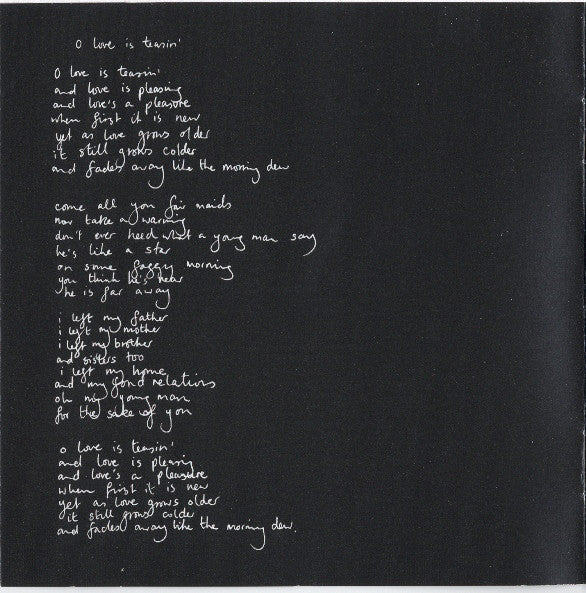 O love is teasin'
O love is teasin'
and love is pleasing
and love's a pleasure
when first it is new
yet as love grows older
it still grows colder
and fades away like the morning dew
come all you fair maids
now take a warning
don't ever heed what a young man say
he's like a star
on some foggy morning
you think he's near
he is far away
i left my father
i left my mother
i left my brother
and sisters too
i left my home
and my fond relations
oh my young man
for the sake of you
o love is teasin'
and love is pleasing
and love's a pleasure
when first it is new
yet as love grows older
it still grows colder
and fades away like the morning dew.